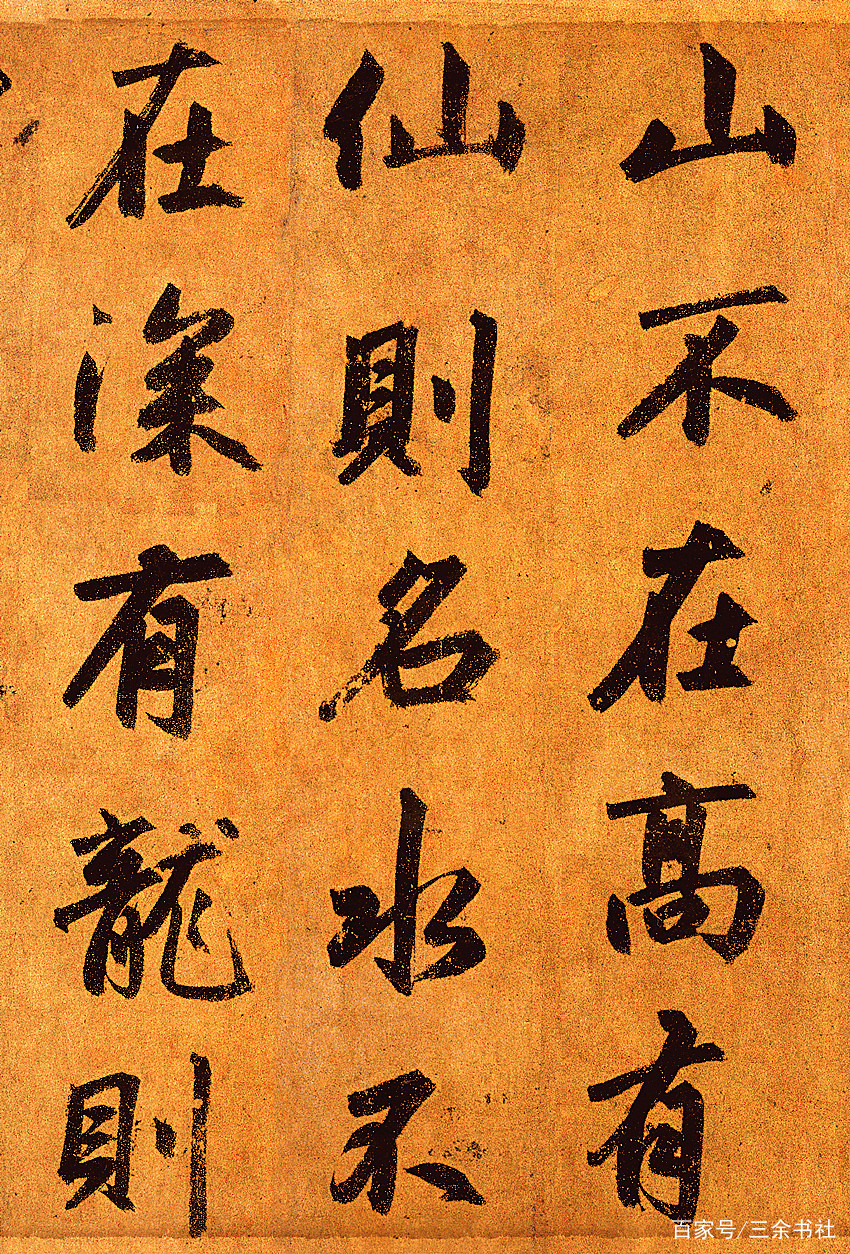 山不在高有
仙則名水不
在深有龍則
百家号/三余书社